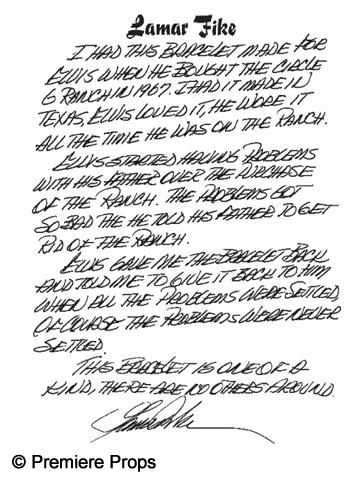 Lamar Fike
I HAD THIS BRACELET MADE FOR
ELVIS WHEN HE BOUGHT THE CIRCLE
G RANCH IN 1967. I HAD IT MADE IN
TEXAS, ELVIS LOVED IT, HE WORE IT
ALL THE TIME HE WAS ON THE RANCH.
ELVIS STARTED HAVING PROBLEMS
WITH HIS FATHER OVER THE PURCHASE
OF THE RANCH. THE PROBLEMS GOT
SO BAD THE HE TOLD HIS FATHER TO GET
RID OF THE RANCH.
ELVIS GAVE ME THE BRACELET BACK
AND TOLD ME TO GIVE IT BACK TO HIM
WHEN ALL THE PROBLEMS WERE SETTLED,
OF COURSE THE PROBLEMS WERE NEVER
SETTLED.
THIS BRACELET IS ONE OF A
KIND, THERE ARE NO OTHERS AROUND.
Lamar Fike
© Premiere Props